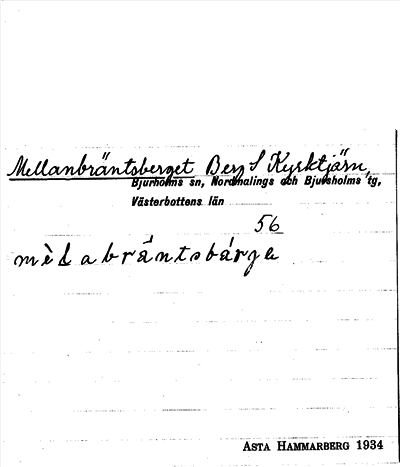 Mellanbräntsberget Berg S Kyrktjärn,
Bjurholms sn, Nordmalings och Bjurholms tg,
Västerbottens län
56
mèlabrä́ntsbárge
ASTA HAMMARBERG 1934